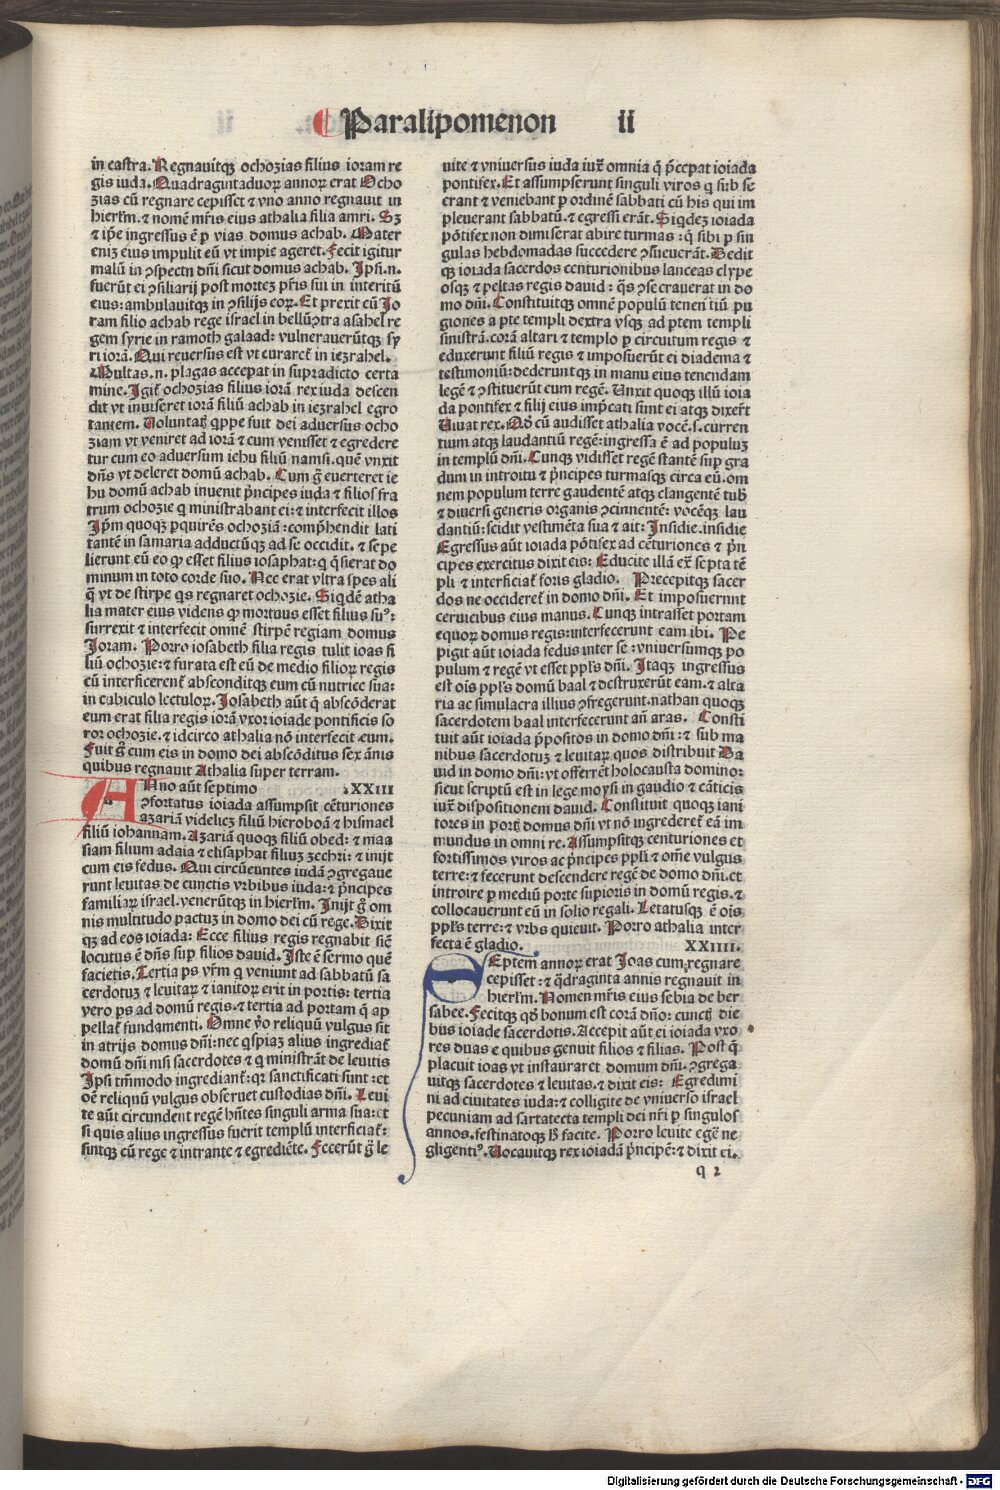 Paralipomenon ii
in castra. Regnauitqꝫ ochozias filius ioram re
gis iuda. Quadragintaduoꝝ annoꝝ erat Ocho
zias cū regnare cepisset ⁊ vno anno regnauit in
hierłm. ⁊ nomē mr̄is eius athalia filia amri. Sꝫ
⁊ ip̄e ingressus ē ꝑ vias domus achab. Mater
enīꝫ eius impulit eū vt impie ageret. Fecit igitur
malū in ꝯspectu dn̄i sicut domus achab. Ipsi.n.
fuerūt ei ꝯsiliarij post morteꝫ pr̄is sui in interitū
eius: ambulauitqꝫ in ꝯsilijs eoꝝ. Et prexit cū Jo
ram filio achab rege israel in bellū ꝯtra asahel re
gem syrie in ramoth galaad: vulnerauerūtqꝫ sy
ri iorā. Qui reuersus est vt curaret̄ in iezrahel.
Multas.n. plagas accepat in supradicto certa
mine. Igit̄ ochozias filius iorā rex iuda descen
dit vt inuiseret iorā filiū achab in iezrahel egro
tantem. Voluntatꝭ q̄ppe fuit dei aduersus ocho
ziam vt veniret ad iorā ⁊ cum venisset ⁊ egredere
tur cum eo aduersum iehu filiū namsi. quē vnxit
dn̄s vt deleret domū achab. Cum g̊ euerteret ie
hu domū achab inuenit p̄ncipes iuda ⁊ filios fra
trum ochozie q ministrabant ei: ⁊ interfecit illos
Ip̄m quoqꝫ ꝑquirēs ochoziā: comp̄hendit lati
tantē in samaria adductūqꝫ ad se occidit. ⁊ sepe
lierunt eū eo ꝙ esset filius iosaphat: q̄ q̄sierat do
minum in toto corde suo. Nec erat vltra spes ali
q̄ vt de stirpe qs regnaret ochozie. Siqdē atha
lia mater eius videns ꝙ mortuus esset filius suꝰ:
surrexit ⁊ interfecit omnē stirpē regiam domus
Joram. Porro iosabeth filia regis tulit ioas fi
liū ochozie: ⁊ furata est eū de medio filioꝝ regis
cū interficerent̄ absconditqꝫ eum cū nutrice sua:
in cubiculo lectuloꝝ. Josabeth aūt q̄ abscōderat
eum erat filia regis iorā vxor ioiade pontificis so
ror ochozie. ⁊ idcirco athalia nō interfecit eum.
Fuit g̊ cum eis in domo dei abscōditus sex ānis
quibus regnauit Athalia super terram.
ANno aūt septimo .XXIII
ꝯfortatus ioiada assumpsit cēturiones
azariā videliczꝫ filiū hieroboā ⁊ hismael
filiū iohannam. Azariā quoqꝫ filiū obed: ⁊ maa
siam filium adaia ⁊ elisaphat filiuꝫ zechri: ⁊ inijt
cum eis fedus. Qui circūeuntes iudā ꝯgregaue
runt leuitas de cunctis vrbibus iuda: ⁊ p̄ncipes
familiaꝝ israel. venerūtqꝫ in hierłm. Inijt g̊ om
nis multitudo pactuꝫ in domo dei cū rege. Dixit
qꝫ ad eos ioiada: Ecce filius regis regnabit sic̄
locutus ē dn̄s suꝑ filios dauid. Iste ē sermo quē
facietis. Tertia ps vr̄m q veniunt ad sabbatū sa
cerdotuꝫ ⁊ leuitaꝝ ⁊ ianitoꝝ erit in portis: tertia
vero ps ad domū regis. ⁊ tertia ad portam q̄ ap
pellat̄ fundamenti. Omne v̊o reliquū vulgus sit
in atrijs domus dn̄i: nec qspiaꝫ alius ingrediat̄
domū dn̄i nisi sacerdotes ⁊ q ministrāt de leuitis
Ipsi tm̄modo ingrediant̄: qꝛ sanctificati sunt: et
oē reliquū vulgus obseruet custodias dn̄i. Leui
te aūt circundent regē hn̄tes singuli arma sua: et
si quis alius ingressus fuerit templū interficiat̄:
sintqꝫ cū rege ⁊ intrante ⁊ egrediēte. Fecerūt g̊ le
uite ⁊ vniuersus iuda iux̄ omnia q̄ p̄cepat ioiada
pontifex. Et assumpserunt singuli viros q sub se
erant ⁊ veniebant ꝑ ordinē sabbati cū his qui im
pleuerant sabbatū. ⁊ egressi erāt. Siqdeꝫ ioiada
pōtifex non dimiserat abire turmas: q̄ sibi ꝑ sin
gulas hebdomadas succedere ꝯsueuerāt. Dedit
qꝫ ioiada sacerdos centurionibus lanceas clype
osqꝫ ⁊ peltas regis dauid: q̄s ꝯsecrauerat in do
mo dn̄i. Constituitqꝫ omnē populū tenentiū pu
giones a pte templi dextra vsqꝫ ad ptem templi
sinistrā. corā altari ⁊ templo ꝑ circuitum regis ⁊
eduxerunt filiū regis ⁊ imposuerūt ei diadema ⁊
testimoniū: dederuntqꝫ in manu eius tenendam
legē ⁊ ꝯstituerūt eum regē. Unxit quoqꝫ illū ioia
da pontifex ⁊ filij eius imp̄cati sunt ei atqꝫ dixer̄t
Viuat rex. Qd̄ cū audisset athalia vocē.s. curren
tium atqꝫ laudantiū regē: ingressa ē ad populuꝫ
in templū dn̄i. Cunqꝫ vidisset regē stantē suꝑ gra
dum in introitu ⁊ p̄ncipes turmasqꝫ circa eū. om
nem populum terre gaudentē atqꝫ clangentē tubꝭ
⁊ diuersi generis organis ꝯcinnentē: vocēqꝫ lau
dantiū: scidit vestimēta sua ⁊ ait: Insidie. insidie
Egressus aūt ioiada pōtifex ad cēturiones ⁊ p̄n
cipes exercitus dixit eis: Educite illā ex̄ septa tē
pli ⁊ interficiat̄ foris gladio. Precepitqꝫ sacer
dos ne occideret̄ in domo dn̄i. Et imposuerunt
ceruicibus eius manus. Cunqꝫ intrasset portam
equoꝝ domus regis: interfecerunt eam ibi. Pe
pigit aūt ioiada fedus inter se: vniuersumqꝫ po
pulum ⁊ regē vt esset ppl̄s dn̄i. Itaqꝫ ingressus
est oīs ppl̄s domū baal ⁊ destruxerūt eam. ⁊ alta
ria ac simulacra illius ꝯfregerunt. nathan quoqꝫ
sacerdotem baal interfecerunt añ aras. Consti
tuit aūt ioiada p̄positos in domo dn̄i: ⁊ sub ma
nibus sacerdotuꝫ ⁊ leuitaꝝ quos distribuit Da
uid in domo dn̄i: vt offerrēt holocausta domino:
sicut scriptū est in lege moysi in gaudio ⁊ cāticis
iux̄ dispositionem dauid. Constituit quoqꝫ iani
tores in portꝭ domus dn̄i vt nō ingrederet̄ eā im
mundus in omni re. Assumpsitqꝫ centuriones et
fortissimos viros ac p̄ncipes ppl̄i ⁊ om̄e vulgus
terre: ⁊ fecerunt descendere regē de domo dn̄i. et
introire ꝑ mediū porte suꝑioris in domū regis. ⁊
collocauerunt eū in solio regali. Letatusqꝫ ē oīs
ppl̄s terre: ⁊ vrbs quieuit. Porro athalia inter
fecta ē gladio. XXIIII.
SEptem annoꝝ erat Joas cum regnare
cepisset: ⁊ q̄draginta annis regnauit in
hierłm. Nomen mr̄is eius sebia de ber
sabee. Fecitqꝫ qd̄ bonum est corā dn̄o: cunctꝭ die
bus ioiade sacerdotis. Accepit aūt ei ioiada vxo
res duas e quibus genuit filios ⁊ filias. Post q̄
placuit ioas vt instauraret domum dn̄i. ꝯgrega
uitqꝫ sacerdotes ⁊ leuitas. ⁊ dixit eis: Egredimi
ni ad ciuitates iuda: ⁊ colligite de vniuerso israel
pecuniam ad sartatecta templi dei nr̄i ꝑ singulos
annos. festinatoqꝫ h̄ facite. Porro leuite egē ne
gligentiꝰ. Vocauitqꝫ rex ioiadā p̄ncipē: ⁊ dixit ei.
q 2
Digitalisierung gefördert durch die Deutsche Forschungsgemeinschaft - DFG